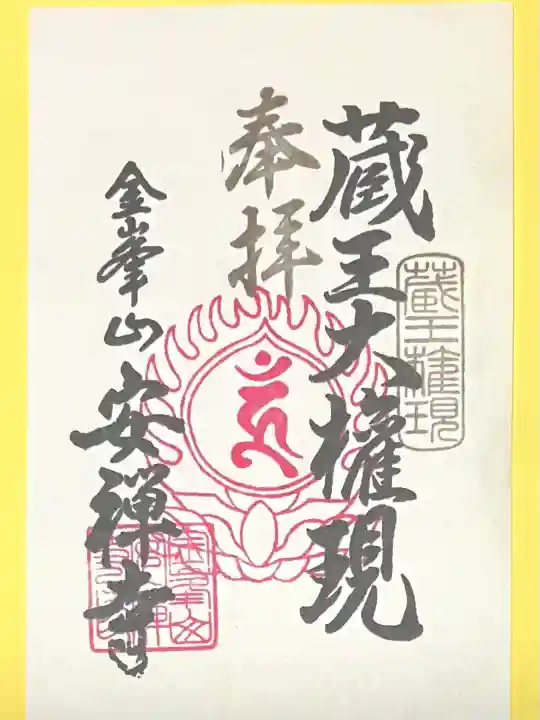 蔵王権現
蔵王大權現
奉拝
金峯山
安禅寺